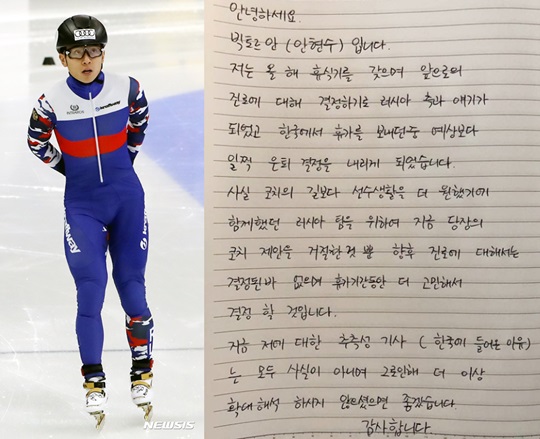 안녕하세요.
빅토르 안 (안현수) 입니다.
저는 올 해 휴식기를 갖으며 앞으로의
진로에 대해 결정하기로 러시아 측과 얘기가
되었고 한국에서 휴가를 보내던중 예상보다
일찍 은퇴 결정을 내리게 되었습니다.
사실 코치의 길보다 선수생활을 더 원했기에
함께했던 러시아 팀을 위하여 지금 당장의
코치 제안을 거절한 것 뿐 향후 진로에 대해서는
결정된바 없으며 휴가기간동안 더 고민해서
결정 할 것입니다.
지금 저에 대한 추측성 기사 ( 한국에 들어온 이유)
는 모두 사실이 아니며 그로인해 더 이상
확대해석 하시지 않으셨으면 좋겠습니다.
감사합니다.
NEWSIS